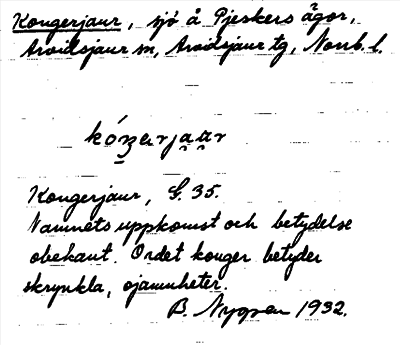 Kongerjaur, sjö å Pjeskers ägor,
Arvidsjaur sn, Arvidsjaur tg, Norrb. l.
kóŋerjau̯r
Kongerjaur, G. 35.
Namnets uppkomst och betydelse
obekant. Ordet konger betyder
skrynkla, ojämnheter.
B. Nygren 1932.